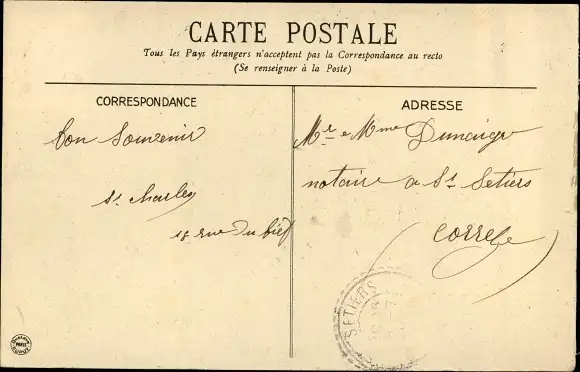 CARTE POSTALE
Tous les Pays étrangers n'acceptent pas la Correspondance au recto
(Se renseigner à la Poste)
CORRESPONDANCE
bon souvenir
St Charles
18 rue du bief
ADRESSE
Mr e Mme
notaire a St Setiers
(Correze)
SETIERS
PARIS